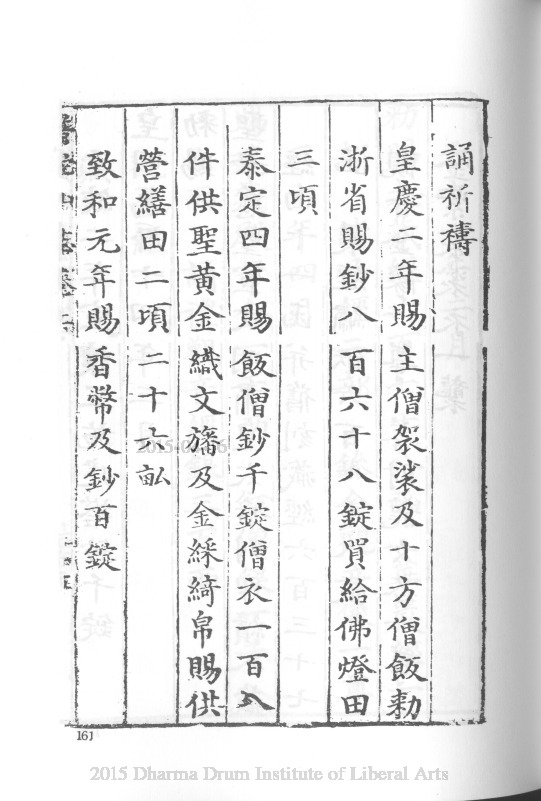 誦祈禱
皇慶二年賜主僧袈裟及十方僧飯勅
浙省賜鈔八百六十八錠買給佛燈田
三頃
泰定四年賜飯僧鈔千錠僧衣一百八
件供聖黃金織文旛及金綵綺帛賜供
營繕田二頃二十六畝
致和元年賜香幣及鈔百錠
161
2015 Dharma Drum Institute of Liberal Arts